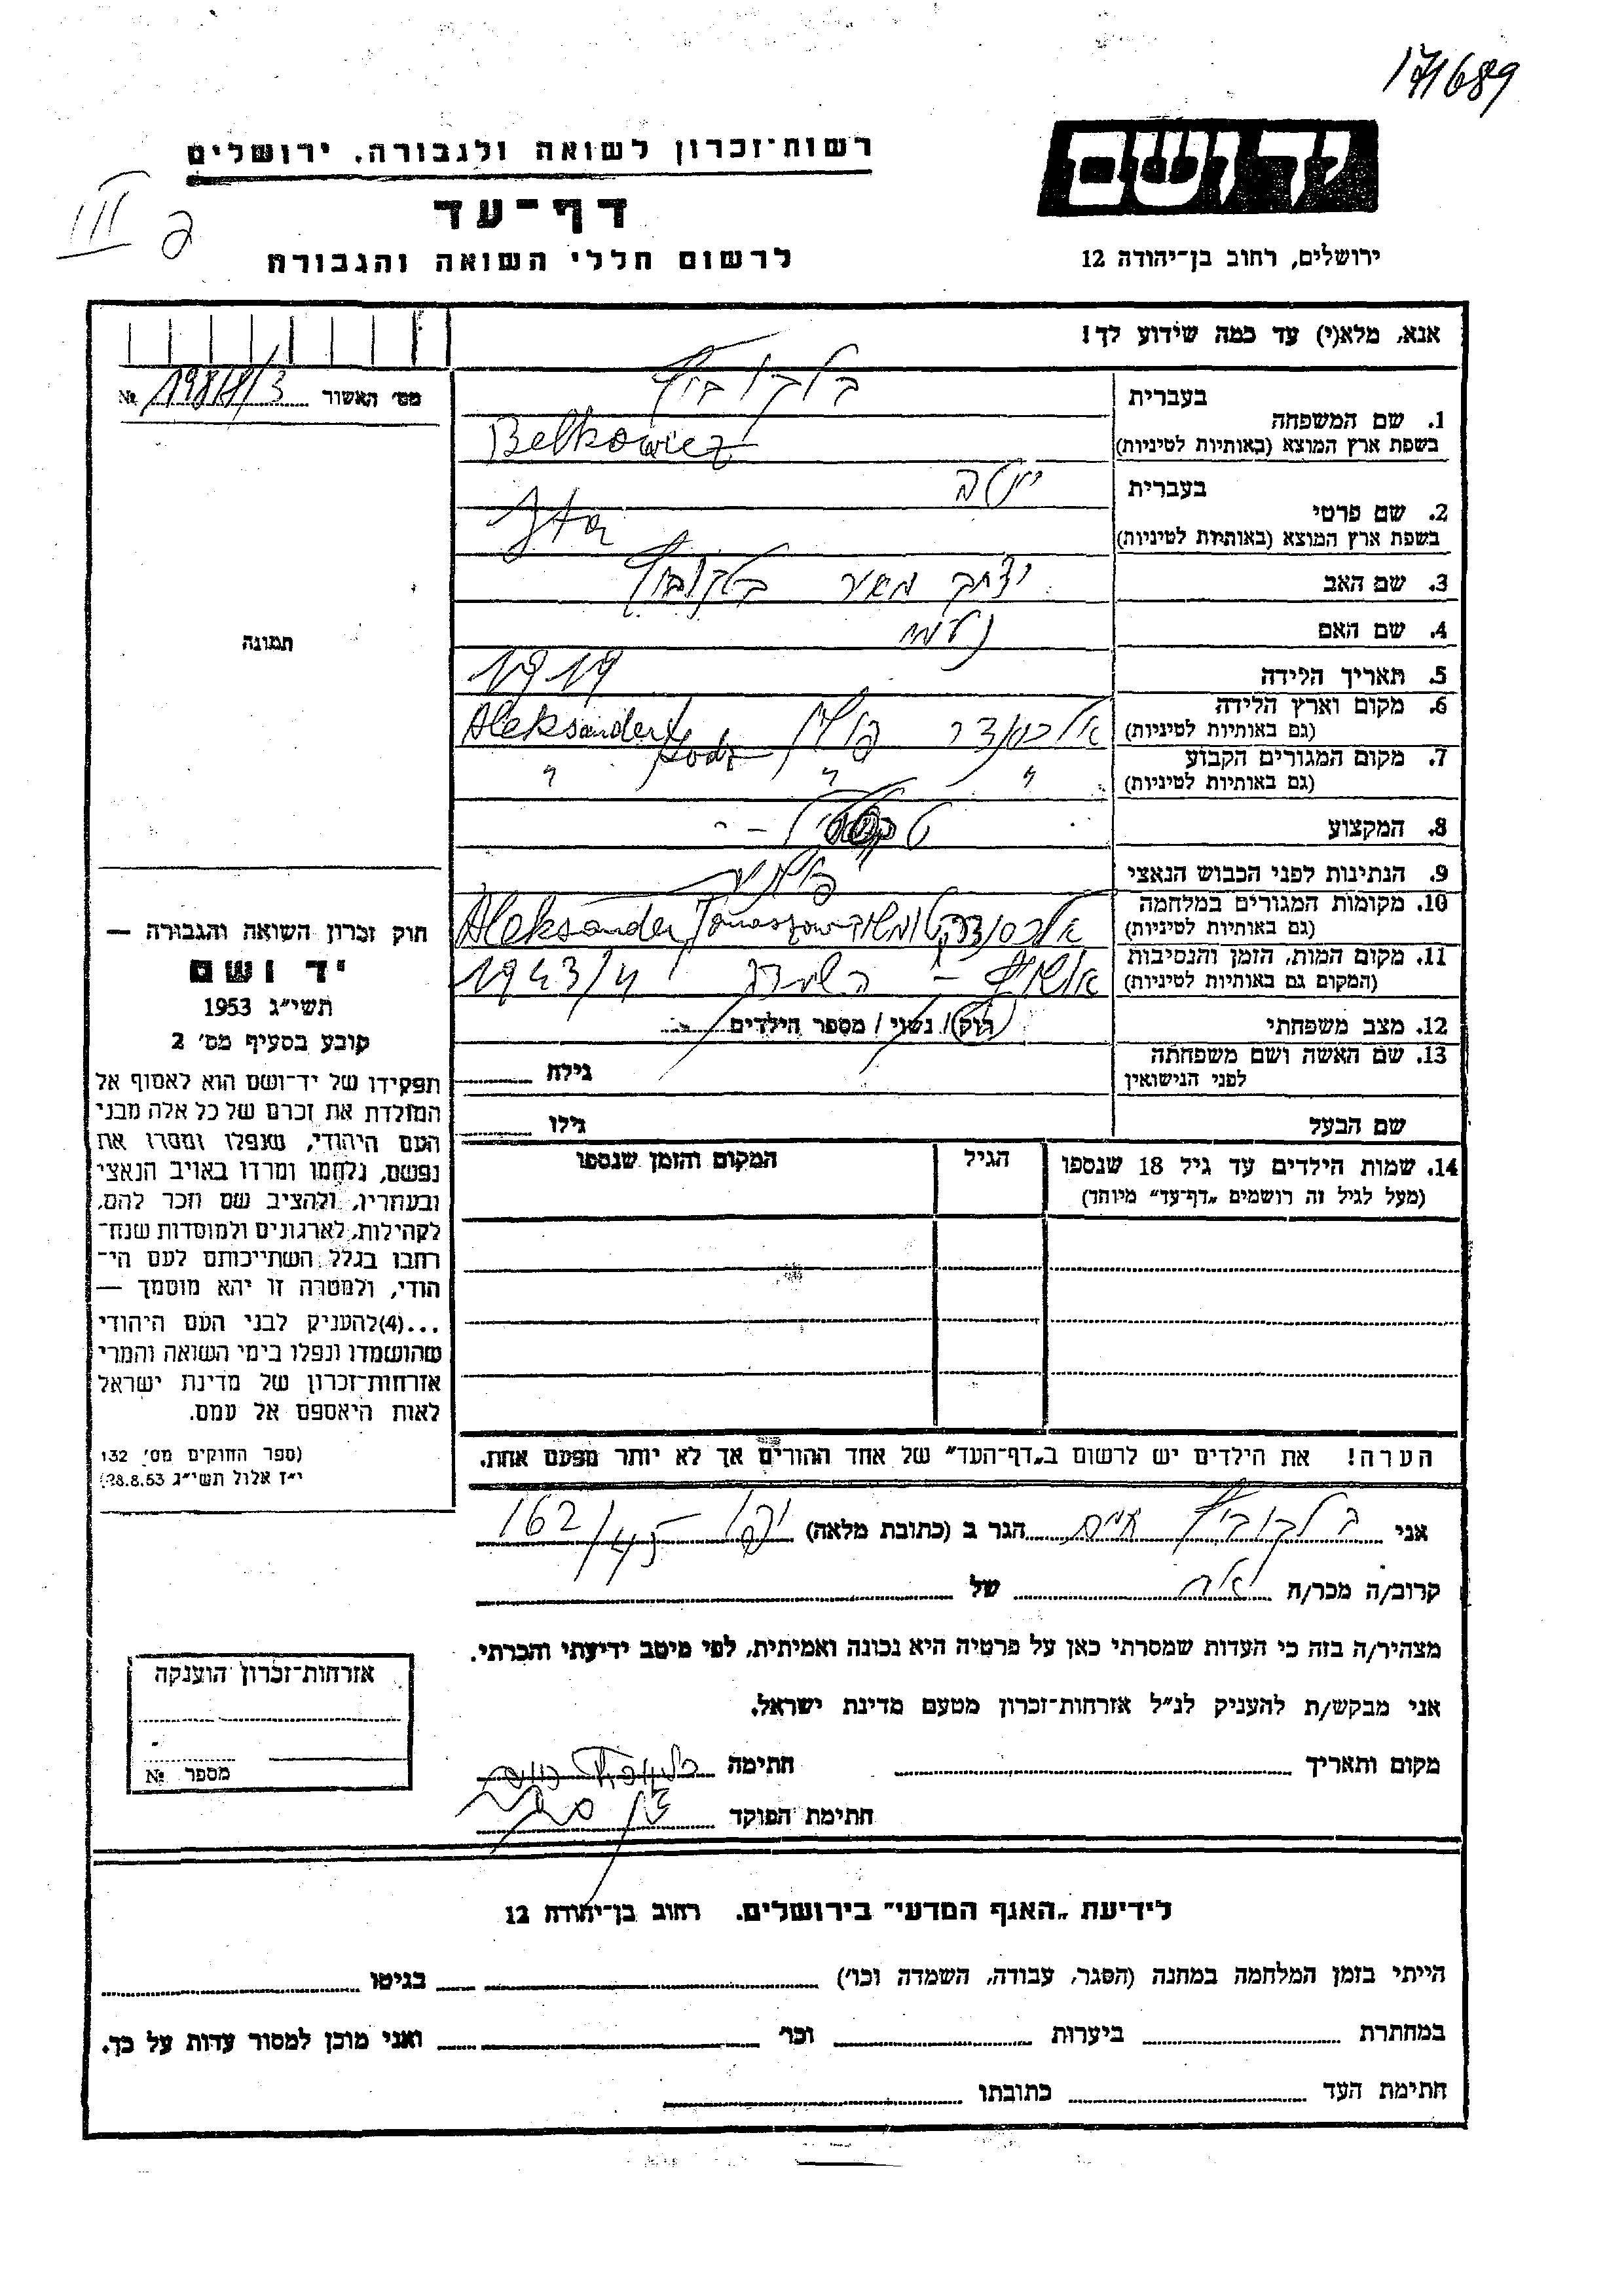 171689
יד ושם
רשות־זכרון לשואה ולגבורה, ירושלים
דף־עד
III
ירושלים, רחוב בן־יהודה 12
לרשום חללי השואה והגבורה
אנא, מלא(י) עד כמה שידוע לך!
מס׳ האשור № 198/8/3
בעברית בלקוביץ
1. שם המשפחה
בשפת ארץ המוצא (באותיות לטיניות) Belkowicz
בעברית יטה
2. שם פרטי
בשפת ארץ המוצא (באותיות לטיניות) Jta
3. שם האב יצחק מאיר בלקוביץ
4. שם האם נעמי
5. תאריך הלידה 1919
6. מקום וארץ הלידה אלכסנדר פולין Aleksander Łodz
(גם באותיות לטיניות)
7. מקום המגורים הקבוע " " "
(גם באותיות לטיניות)
8. המקצוע
9. הנתינות לפני הכבוש הנאצי פולנית
10. מקומות המגורים במלחמה אלכסנדר Aleksander Tomaszow
(גם באותיות לטיניות)
11. מקום המות, הזמן והנסיבות אושויץ – השמדה 1943/4
(המקום גם באותיות לטיניות)
12. מצב משפחתי רווק/ נשוי/ מספר הילדים
13. שם האשה ושם משפחתה
לפני הנישואין גילה
שם הבעל גילו
14. שמות הילדים עד גיל 18 שנספו הגיל המקום והזמן שנספו
(מעל לגיל זה רושמים „דף־עד” מיוחד)
תמונה
חוק זכרון השואה והגבורה —
יד ושם
תשי״ג 1953
קובע בסעיף מס׳ 2
תפקידו של יד־ושם הוא לאסוף אל
המולדת את זכרם של כל אלה מבני
העם היהודי, שנפלו ומסרו את
נפשם, נלחמו ומרדו באויב הנאצי
ובעוזריו, ולהציב שם וזכר להם,
לקהילות, לארגונים ולמוסדות שנח־
רחבו בגלל השתייכותם לעם הי־
הודי, ולמטרה זו יהא מוסמך —
...(4)להעניק לבני העם היהודי
שהושמדו ונפלו בימי השואה והמרי
אזרחות־זכרון של מדינת ישראל
לאות היאספם אל עמם.
(ספר החוקים מס׳ 132
י״ז אלול תשי״ג 28.8.53)
הערה! את הילדים יש לרשום ב„דף־העד” של אחד ההורים אך לא יותר מפעם אחת.
אני בלקוביץ חיים הגר ב (כתובת מלאה) יפו 162/45
קרוב/ה מכר/ה אח של
מצהיר/ה בזה כי העדות שמסרתי כאן על פרטיה היא נכונה ואמיתית, לפי מיטב ידיעתי והכרתי.
אני מבקש/ת להעניק לנ״ל אזרחות־זכרון מטעם מדינת ישראל.
מקום ותאריך חתימה
חתימת הפוקד
אזרחות־זכרון הוענקה
מספר №
לידיעת „האגף המדעי” בירושלים. רחוב בן־יהודה 12
הייתי בזמן המלחמה במחנה (הסגר, עבודה, השמדה וכו׳) בגיטו
במחתרת ביערות וכו׳ ואני מוכן למסור עדות על כך.
חתימת העד כתובתו